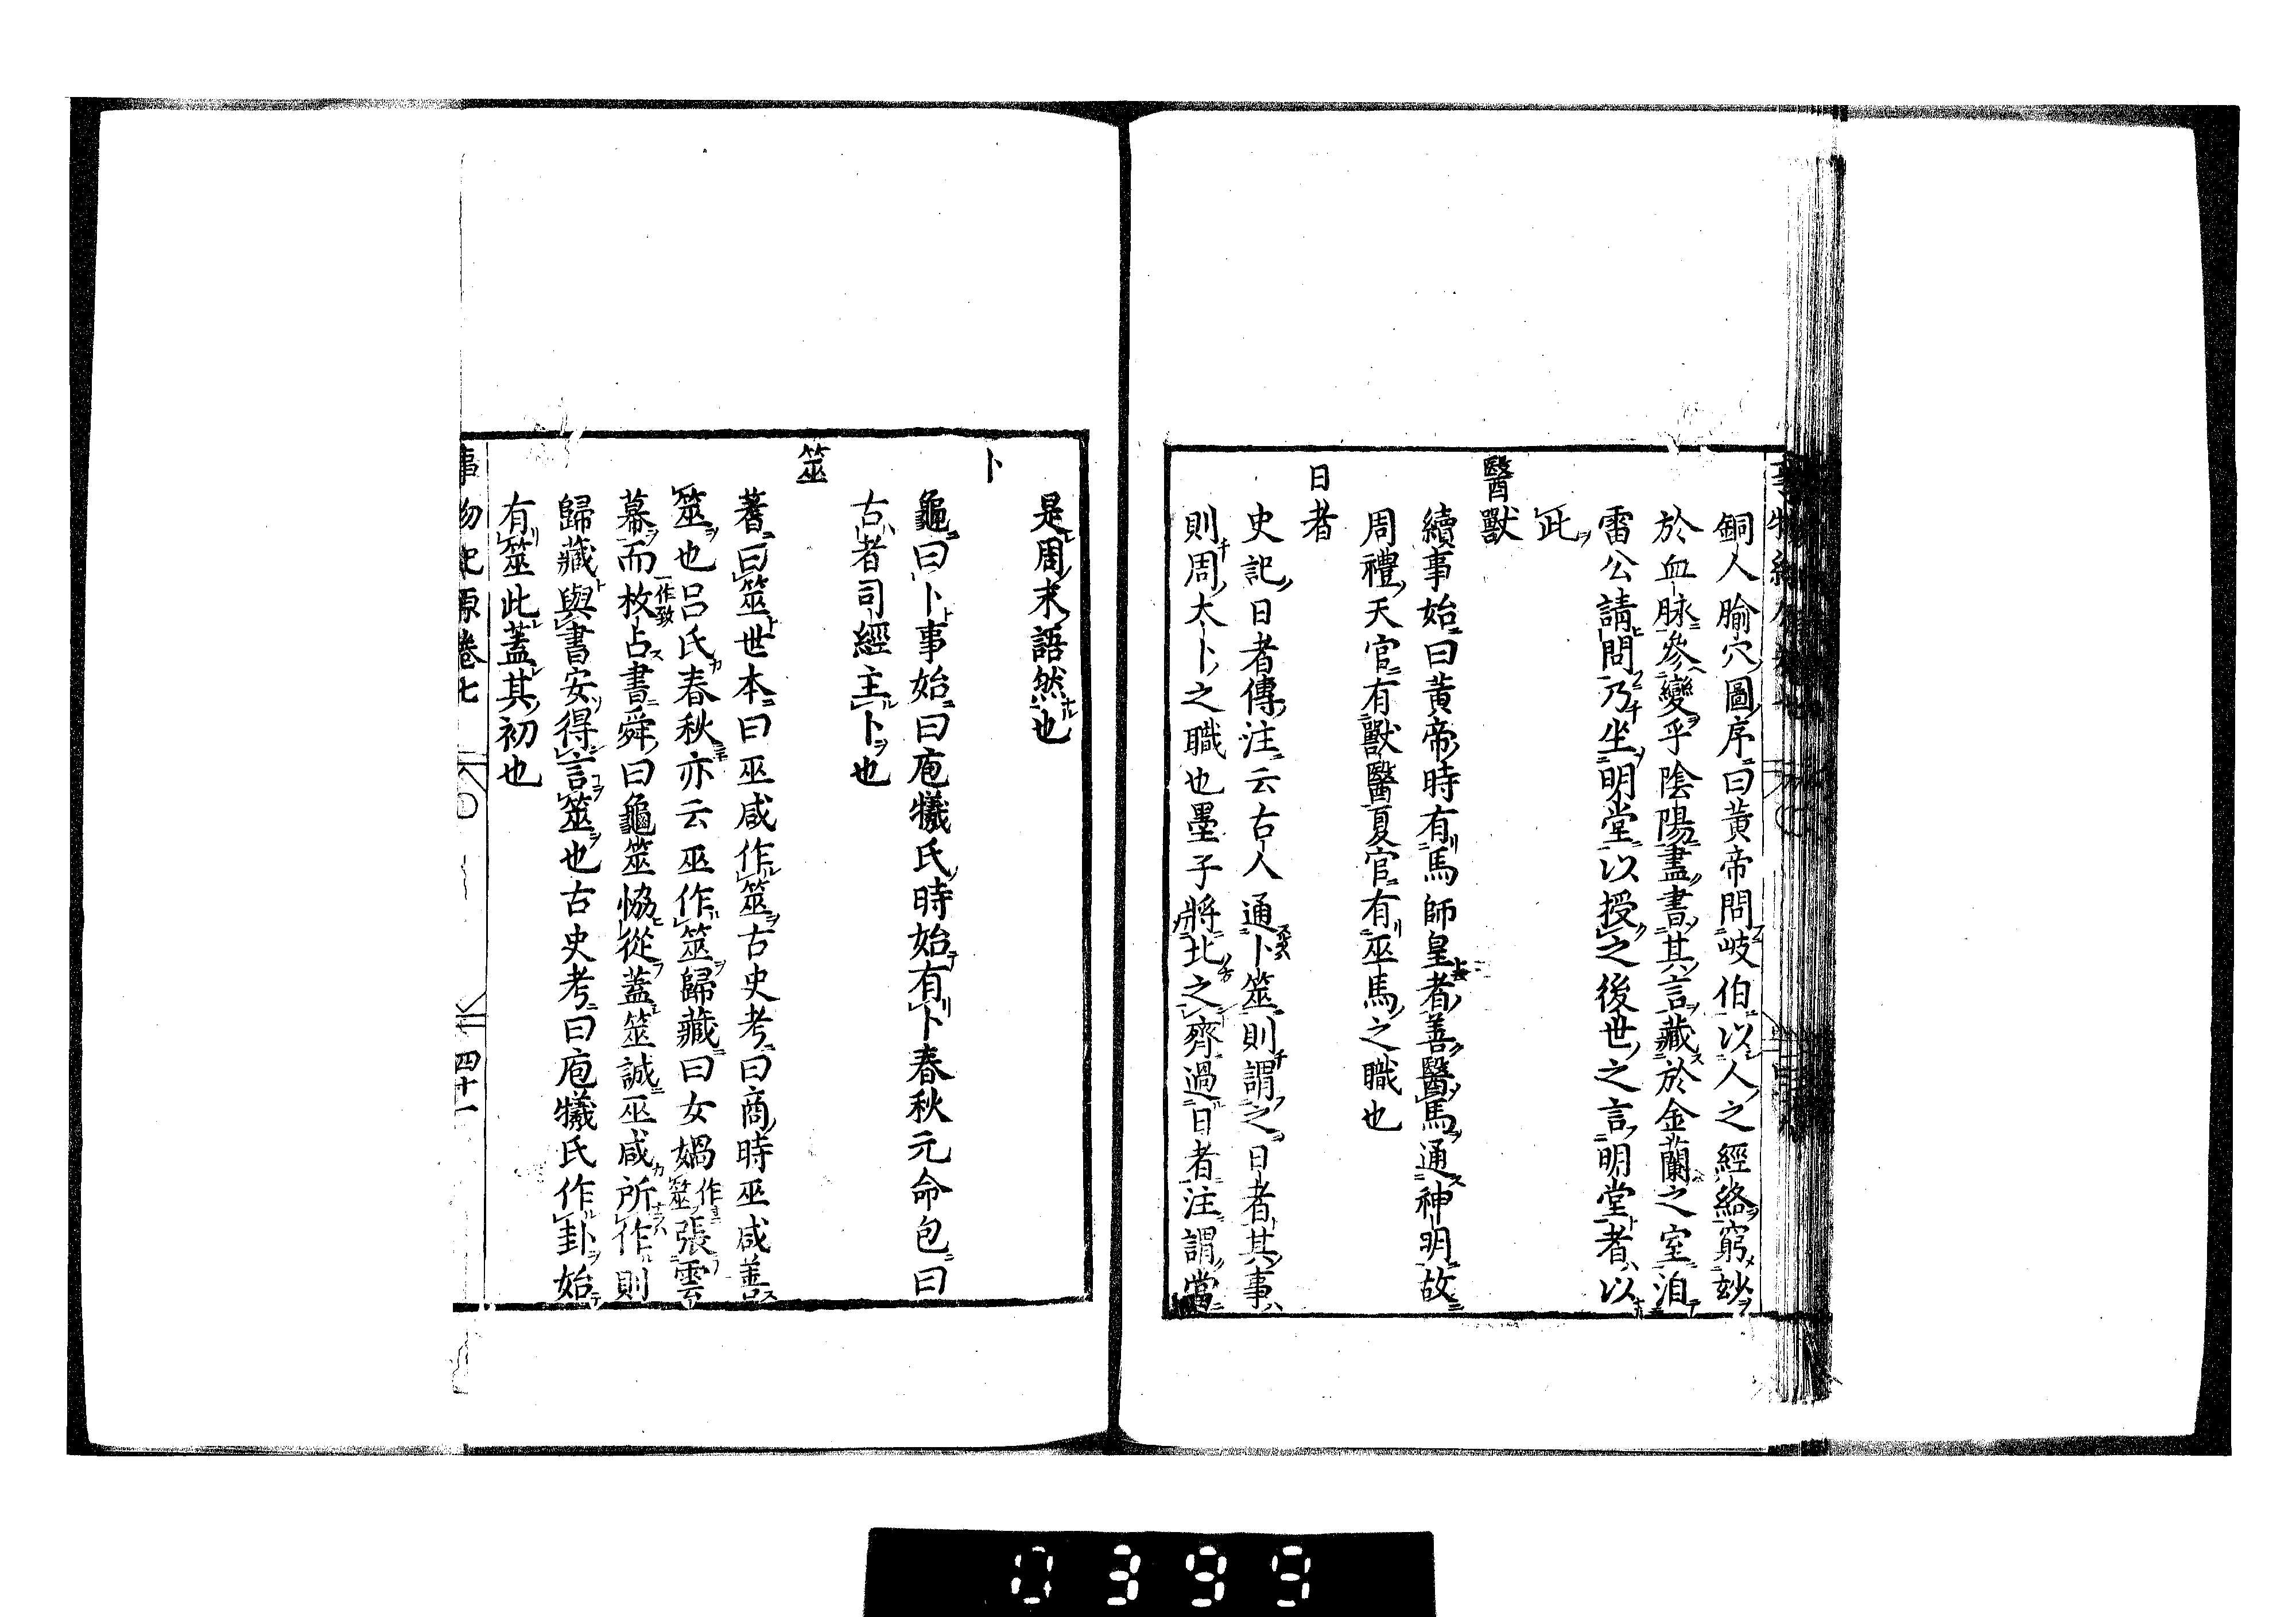 銅人腧穴圖序曰黃帝問岐伯以人之經絡窮妙
於血脉參變乎陰陽盡書其言藏於金蘭之室洎
雷公請問乃坐明堂以授之後世之言明堂者以
此
醫獸
續事始曰黃帝時有馬師皇者善醫馬通神明故
周禮天官有獸醫夏官有巫馬之職也
日者
史記日者傳注云古人通卜筮則謂之日者其事
則周太卜之職也墨子將北之齊過日者注謂當
是周末語然也
卜
龜曰卜事始曰庖犧氏時始有卜春秋元命包曰
古者司經主卜也
筮
蓍曰筮世本曰巫咸作筮古史考曰商時巫咸善
筮也呂氏春秋亦云巫作筮歸藏曰女媧作筮張雲
幕而枚一作致占書舜曰龜筮恊從蓋筮誠巫咸所作則
歸藏與書安得言筮也古史考曰庖犧氏作卦始
有筮此蓋其初也
事物紀原卷七 四十一
0399